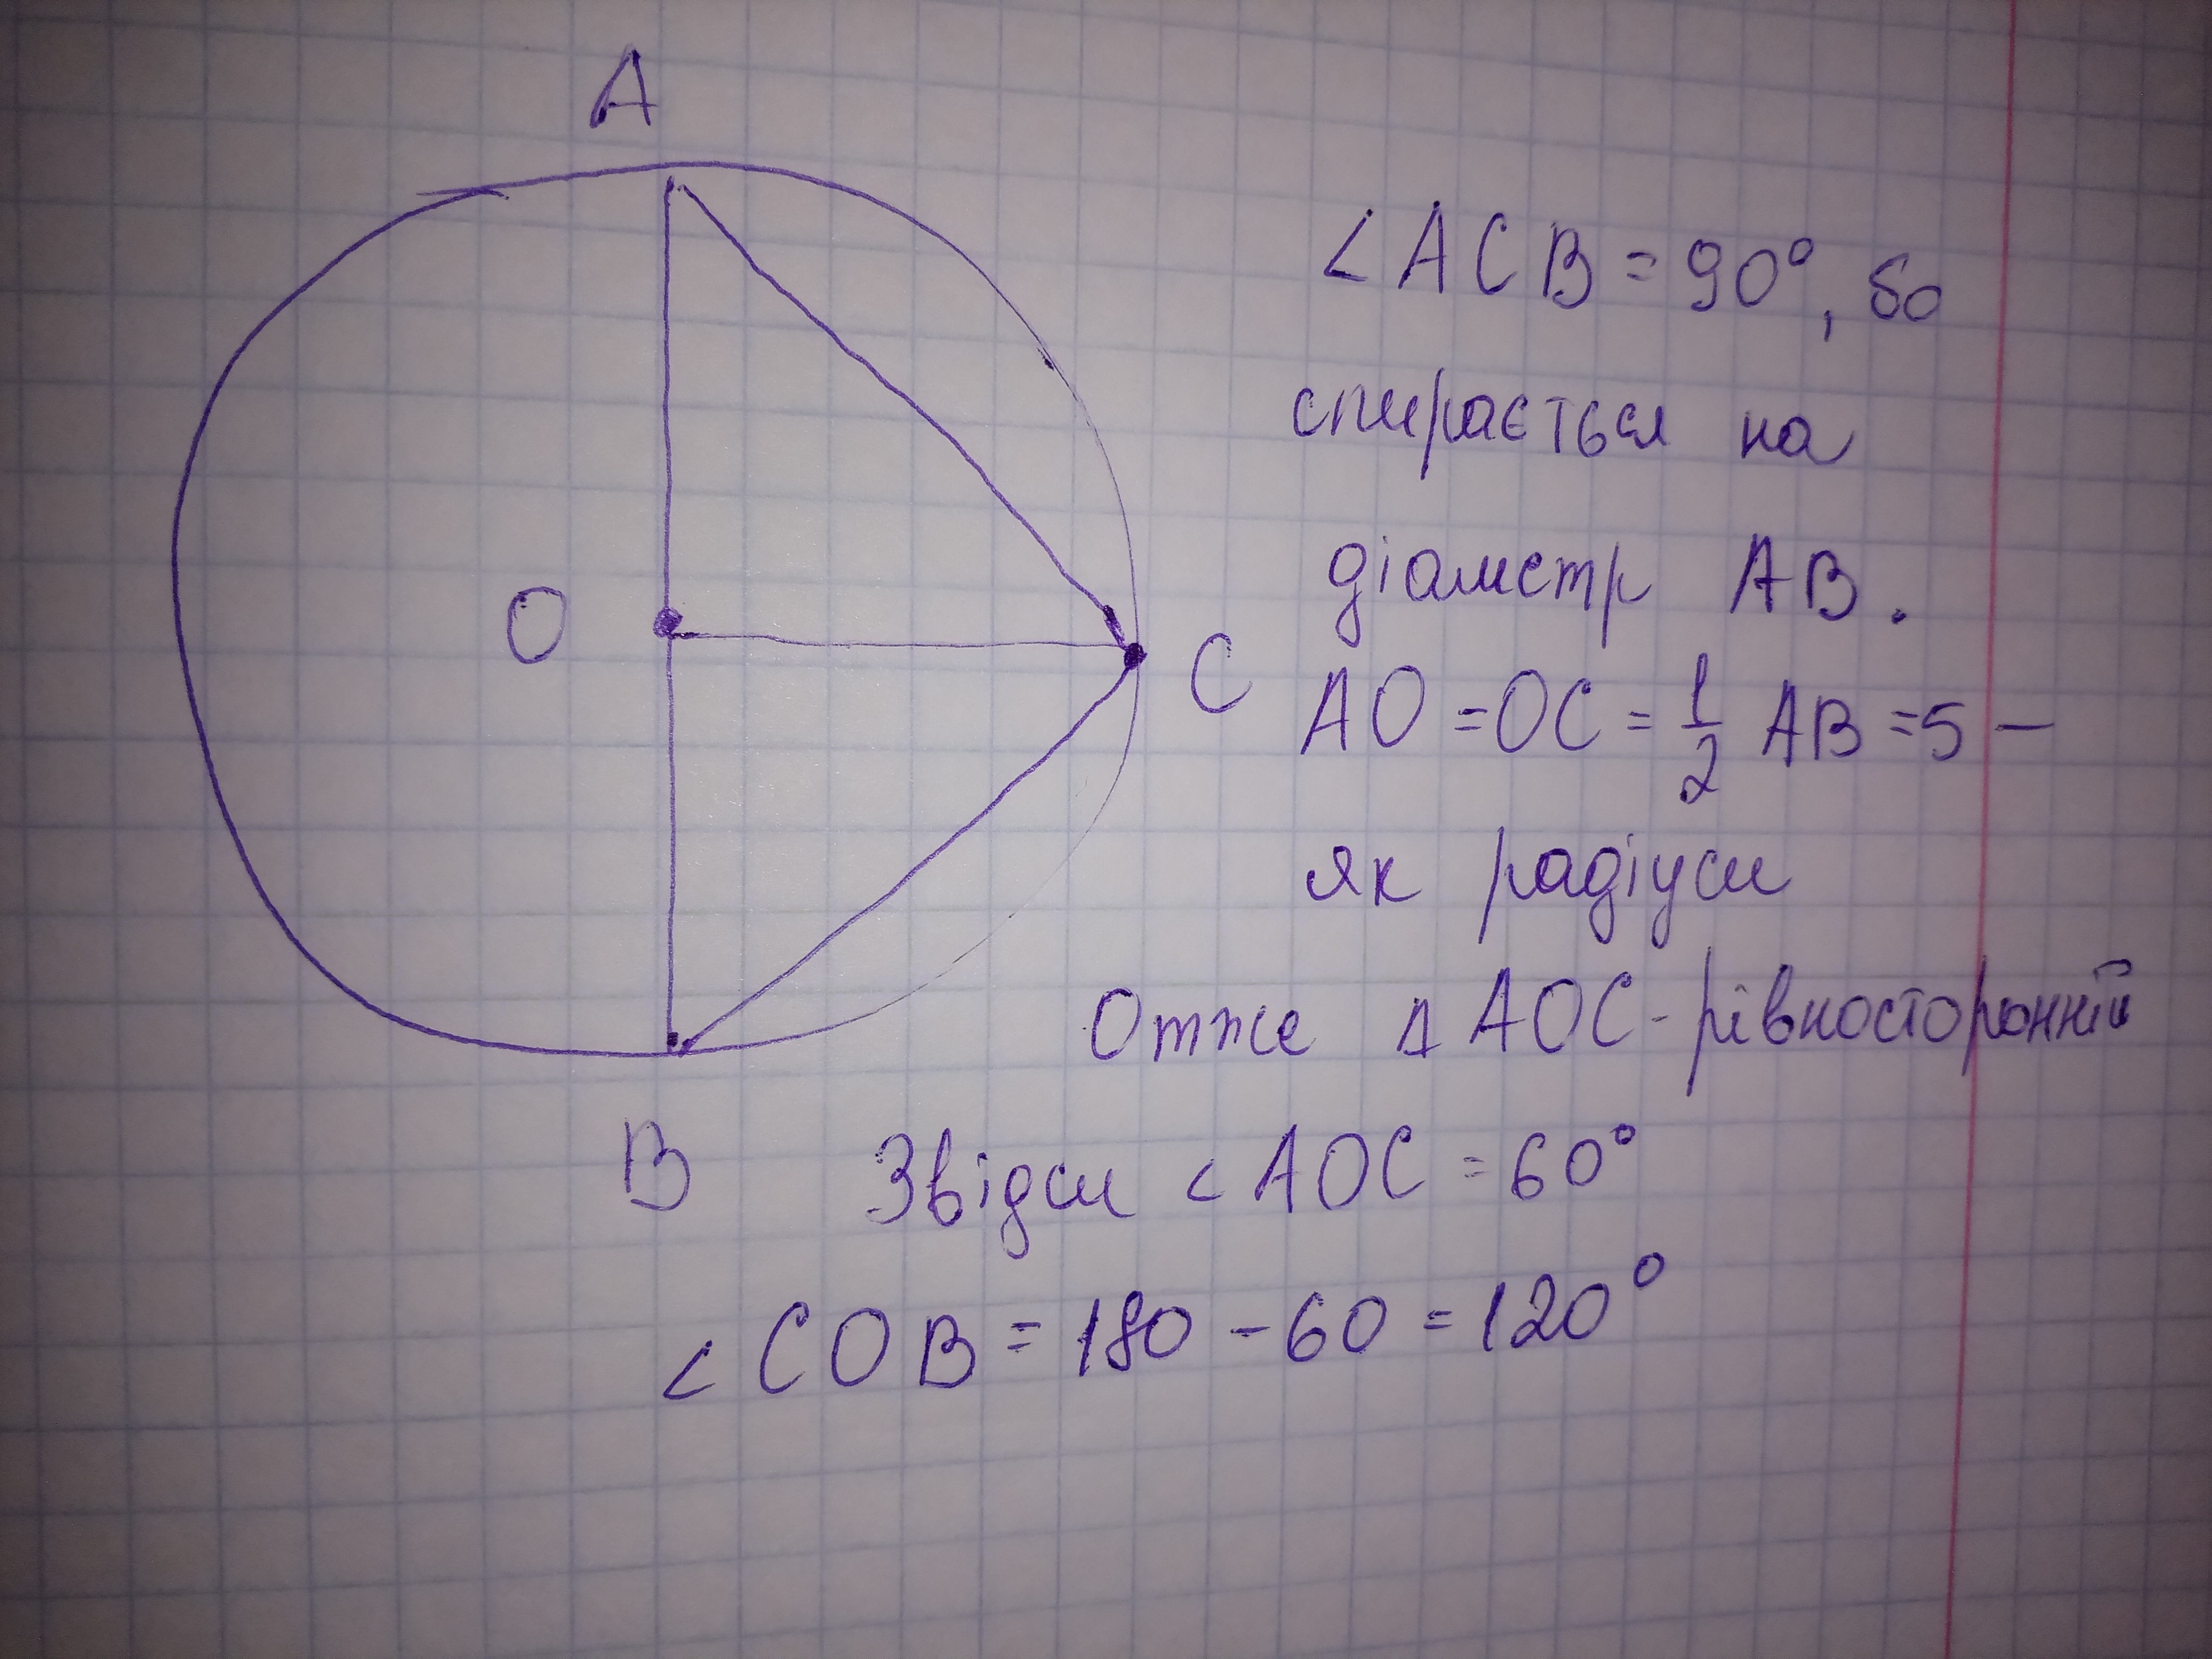 A
∠ACB = 90°, бо
спирається на
діаметр AB.
O
C
AO = OC = 1/2 AB = 5 –
як радіуси
Отже Δ AOC - рівносторонній
B
Звідси ∠AOC = 60°
∠COB = 180 - 60 = 120°